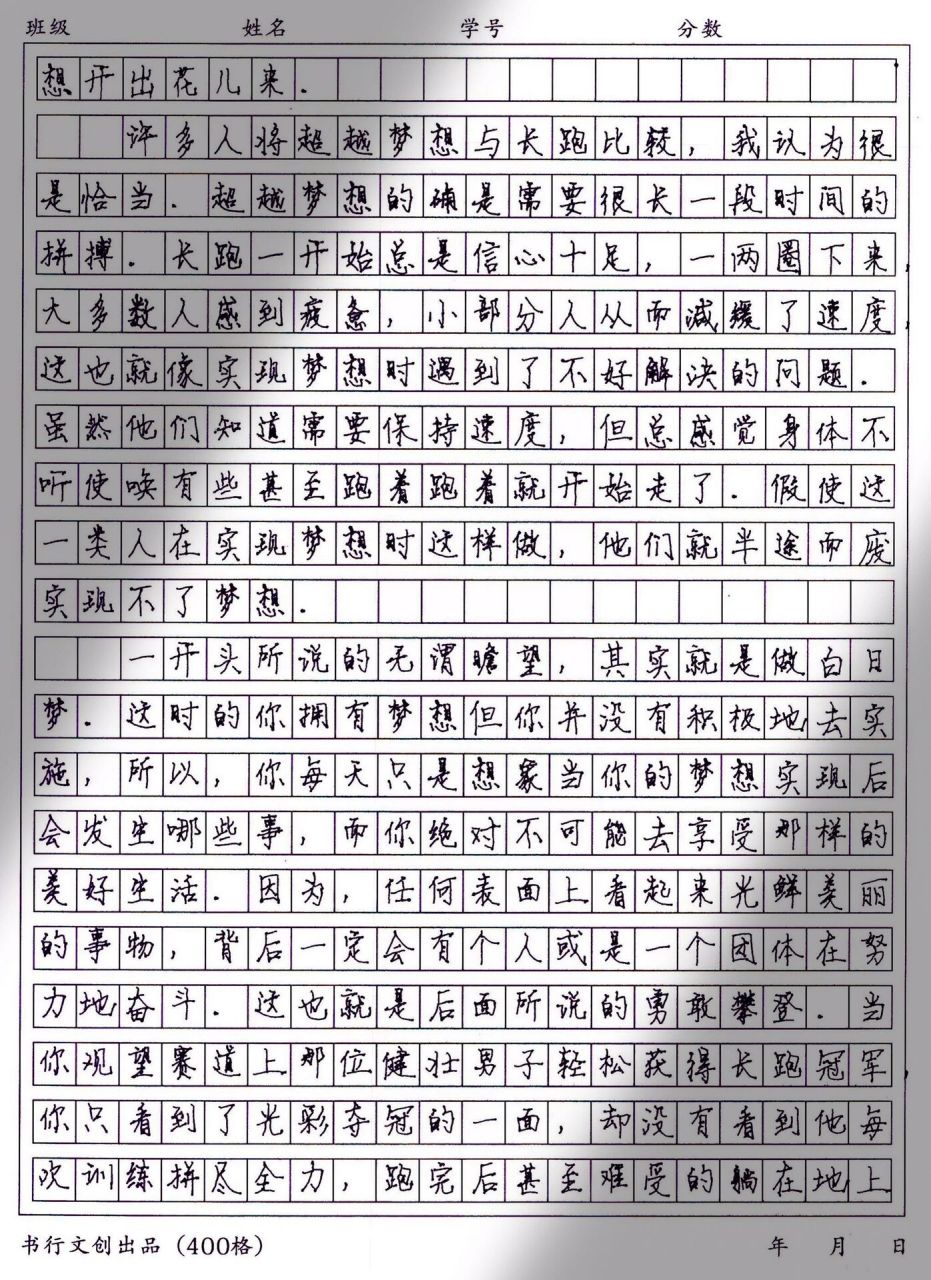 班级 姓名 学号 分数
想开出花儿来.
许多人将超越梦想与长跑比较,我认为很
是恰当.超越梦想的确是需要很长一段时间的
拼搏.长跑一开始总是信心十足,一两圈下来,
大多数人感到疲惫,小部分人从而减缓了速度,
这也就像实现梦想时遇到了不好解决的问题.
虽然他们知道需要保持速度,但总感觉身体不
听使唤有些甚至跑着跑着就开始走了.假使这
一类人在实现梦想时这样做,他们就半途而废
实现不了梦想.
一开头所说的无谓瞻望,其实就是做白日
梦.这时的你拥有梦想但你并没有积极地去实
施,所以,你每天只是想象当你的梦想实现后
会发生哪些事,而你绝对不可能去享受那样的
美好生活.因为,任何表面上看起来光鲜美丽
的事物,背后一定会有个人或是一个团体在努
力地奋斗.这也就是后面所说的勇敢攀登.当
你观望赛道上那位健壮男子轻松获得长跑冠军,
你只看到了光彩夺冠的一面,却没有看到他每
次训练拼尽全力,跑完后甚至难受的躺在地上
书行文创出品(400格) 年 月 日